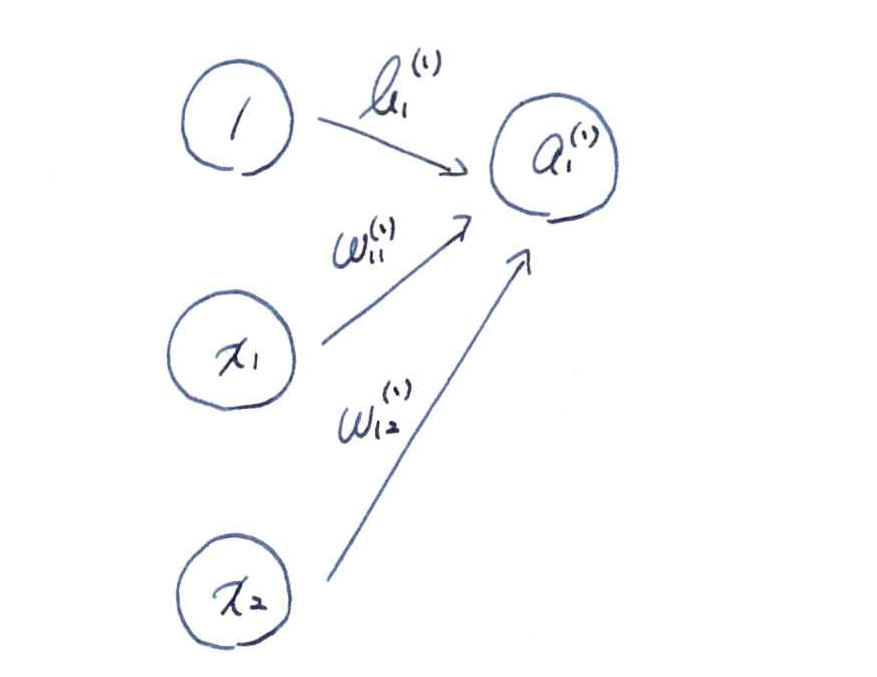 1
b₁⁽¹⁾
a₁⁽¹⁾
w₁₁⁽¹⁾
x₁
w₁₂⁽¹⁾
x₂